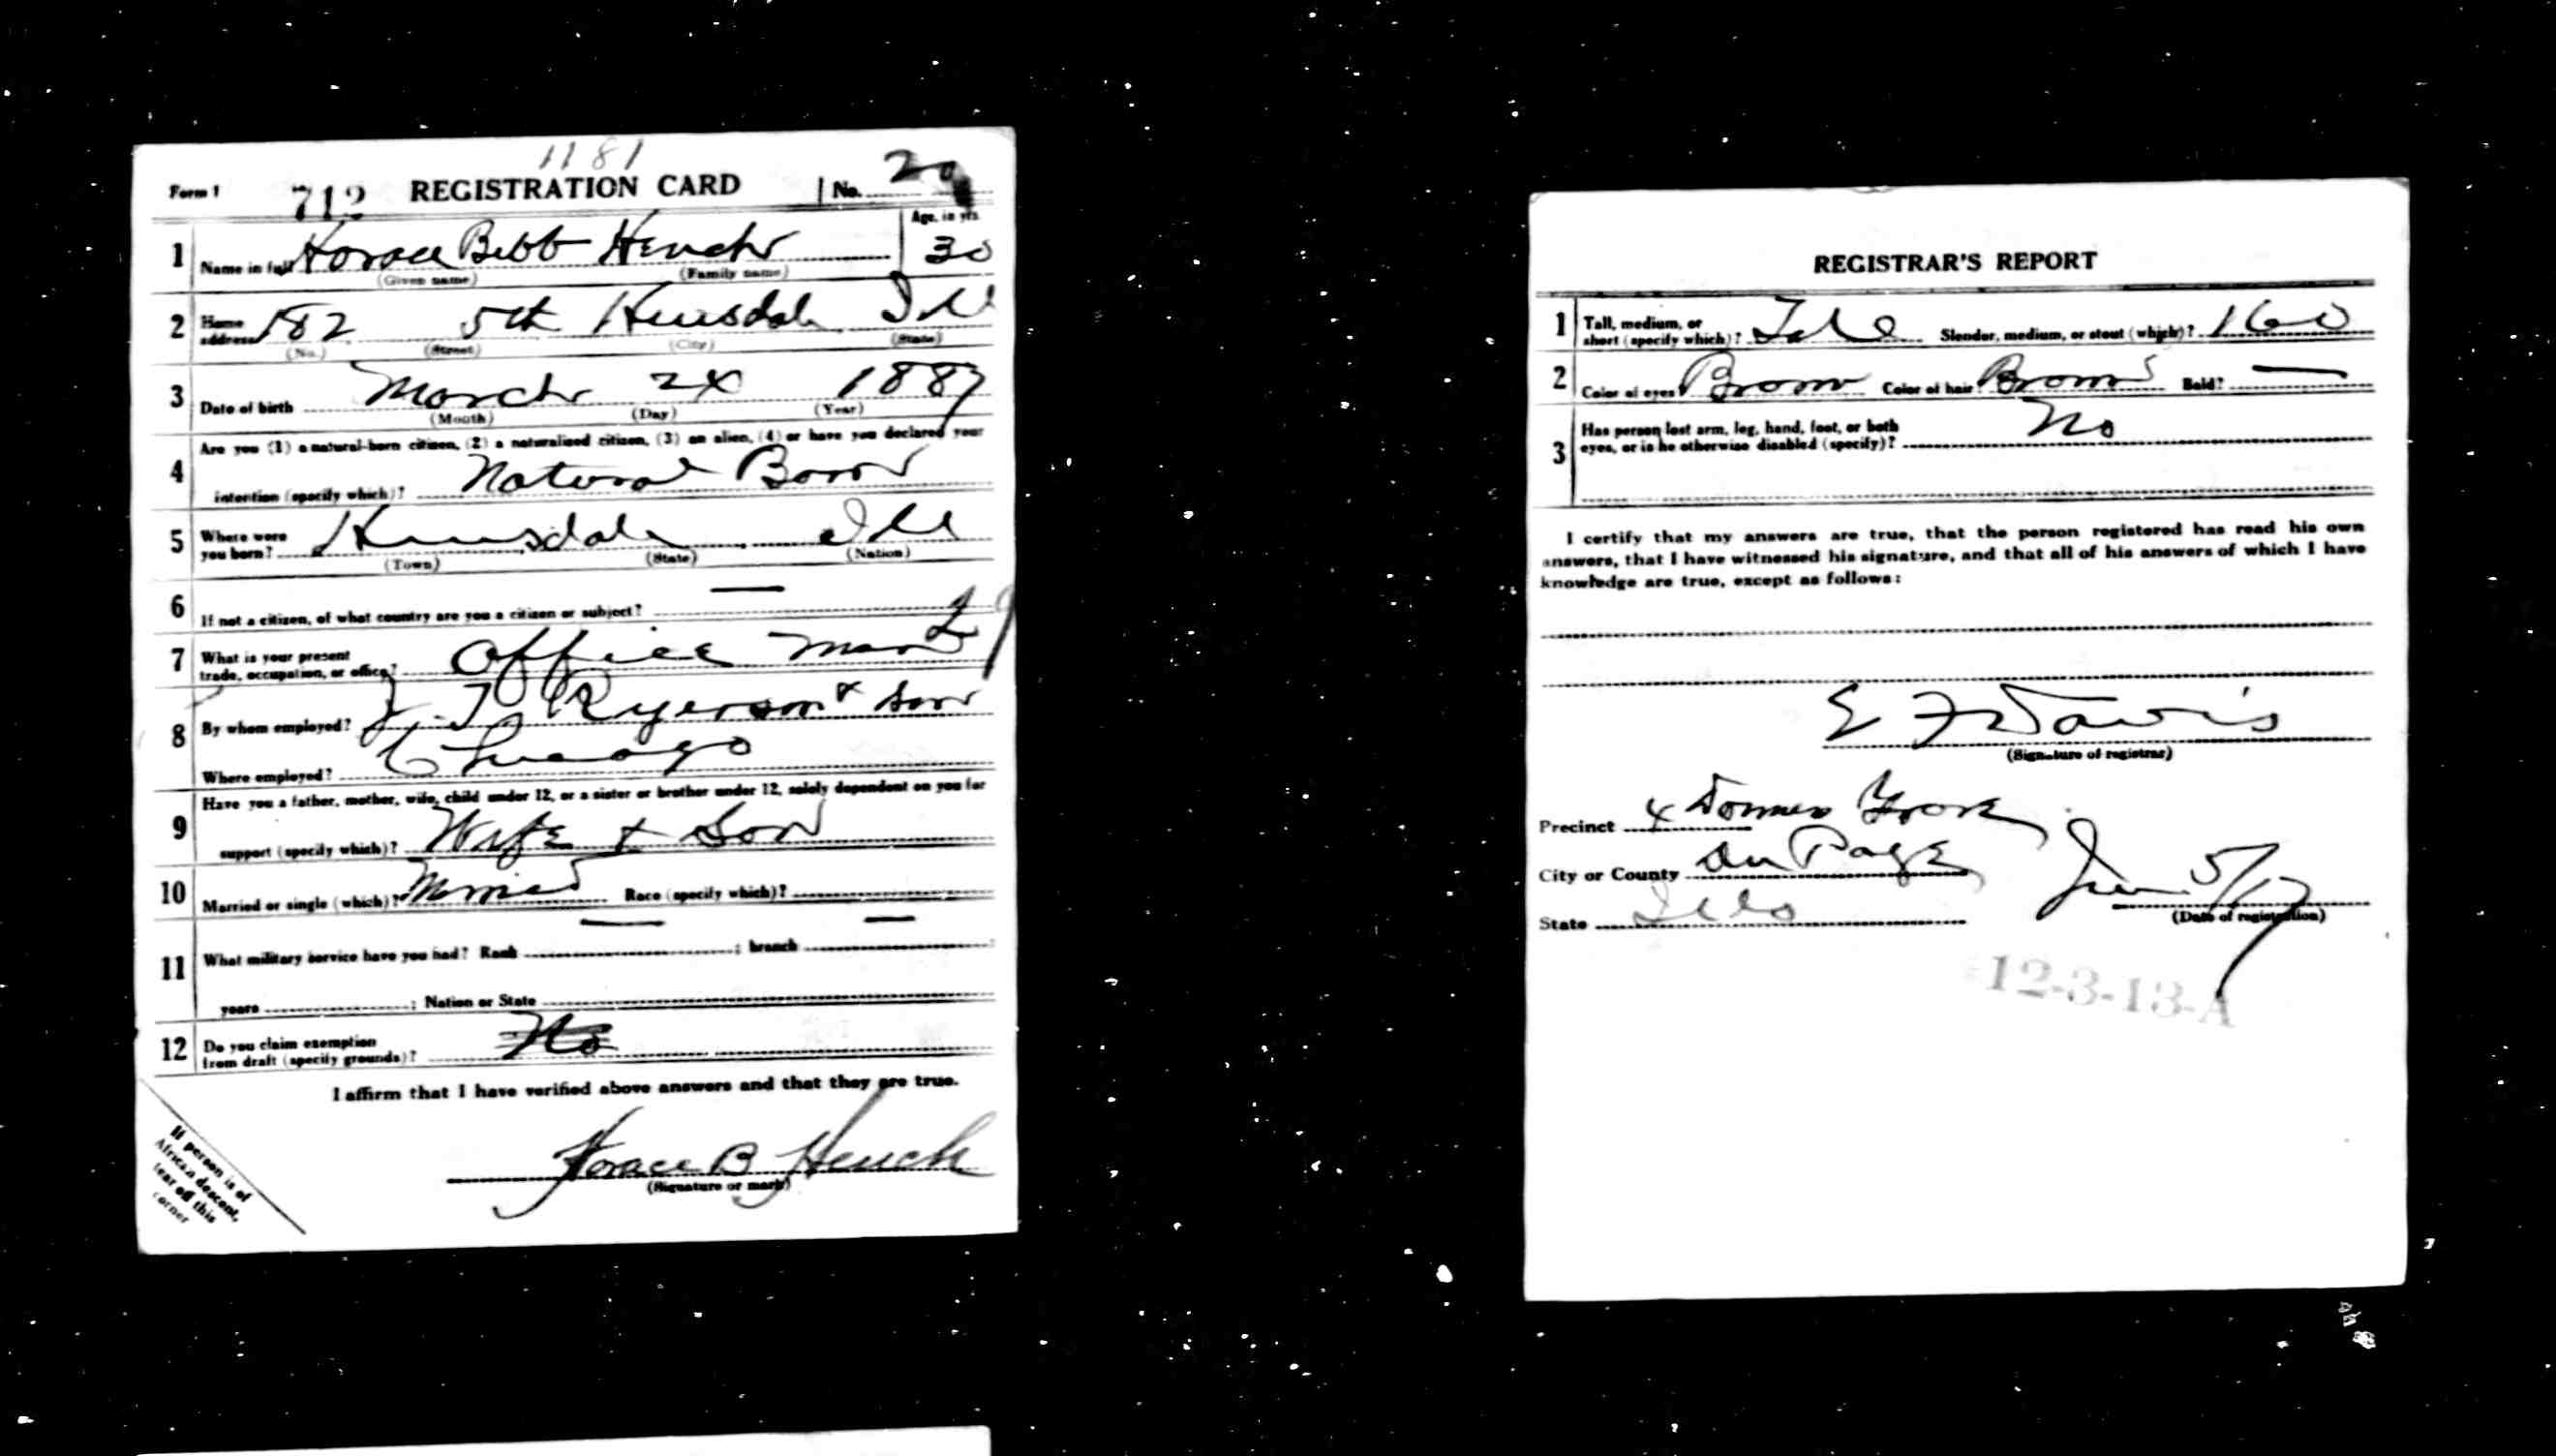 1181
Form 1 712 REGISTRATION CARD No. 20
Age, in yrs.
1 Name in full Horace Bibb Hench 30
(Given name) (Family name)
2 Home address 182 5th Hinsdale Ill
(No.) (Street) (City) (State)
3 Date of birth March 24 1887
(Month) (Day) (Year)
4 Are you (1) a natural-born citizen, (2) a naturalized citizen, (3) an alien, (4) or have you declared your
intention (specify which)? Natural Born
5 Where were you born? Hinsdale Ill
(Town) (State) (Nation)
6 If not a citizen, of what country are you a citizen or subject? —
7 What is your present trade, occupation, or office? Office man
8 By whom employed? J. T Ryerson & Son
Where employed? Chicago
9 Have you a father, mother, wife, child under 12, or a sister or brother under 12, solely dependent on you for
support (specify which)? Wife + Son
10 Married or single (which)? Married Race (specify which)?
11 What military service have you had? Rank — ; branch —
years ; Nation or State
12 Do you claim exemption from draft (specify grounds)? No
I affirm that I have verified above answers and that they are true.
Horace B Hench
(Signature or mark)
If person is of
African descent,
tear off this
corner
REGISTRAR'S REPORT
1 Tall, medium, or short (specify which)? Slender, medium, or stout (which)? 160
2 Color of eyes? Brown Color of hair? Brown Bald? —
3 Has person lost arm, leg, hand, foot, or both
eyes, or is he otherwise disabled (specify)? No
I certify that my answers are true, that the person registered has read his own
answers, that I have witnessed his signature, and that all of his answers of which I have
knowledge are true, except as follows:
E F Davis
(Signature of registrar)
Precinct 4 Downers Grove
City or County Du Page
State Ills
June 5/17
(Date of registration)
12-3-13-A